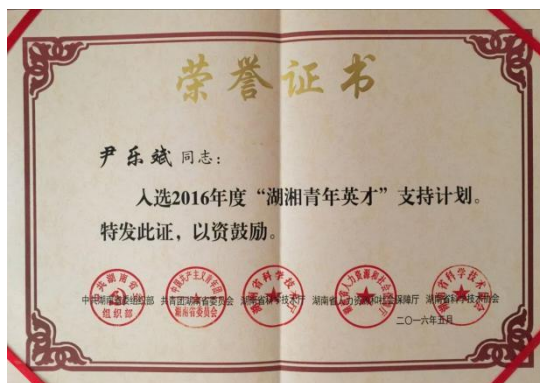 荣誉证书
尹乐斌 同志：
入选2016年度“湖湘青年英才”支持计划。
特发此证，以资鼓励。
中共湖南省委组织部 共青团湖南省委员会 湖南省科学技术厅 湖南省人力资源和社会保障厅 湖南省科学技术协会
二〇一六年五月